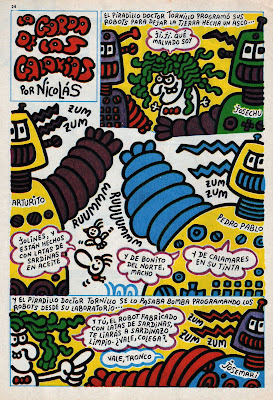 24
LA
GORDA
DE LAS
GALAXIAS
POR NICOLÁS
EL PIRADILLO DOCTOR TORNILLO PROGRAMÓ SUS
ROBOTS PARA DEJAR LA TIERRA HECHA UN ASCO...
JI, JI, QUÉ
MALVADO SOY
JOSECHU
ZUM
ZUM
ZUM
ZUM
ARTURITO
RUUUMMMM
RUUUUMMMM
PEDRO PABLO
¡OLINES, Y
ESTÁN HECHOS
CON LATAS DE
SARDINAS
EN ACEITE
Y DE BONITO
DEL NORTE,
MACHO
Y DE CALAMARES
EN SU TINTA
Y EL PIRADILLO DOCTOR TORNILLO SE LO PASABA BOMBA PROGRAMANDO LOS
ROBOTS DESDE SU LABORATORIO...
Y TÚ, EL ROBOT FABRICADO
CON LATAS DE SARDINAS,
TE LIARÁS A SARDINAZO
LIMPIO, ¿VALE, COLEGA?
VALE, TRONCO
ZUM
ZUM
JOSEMARI